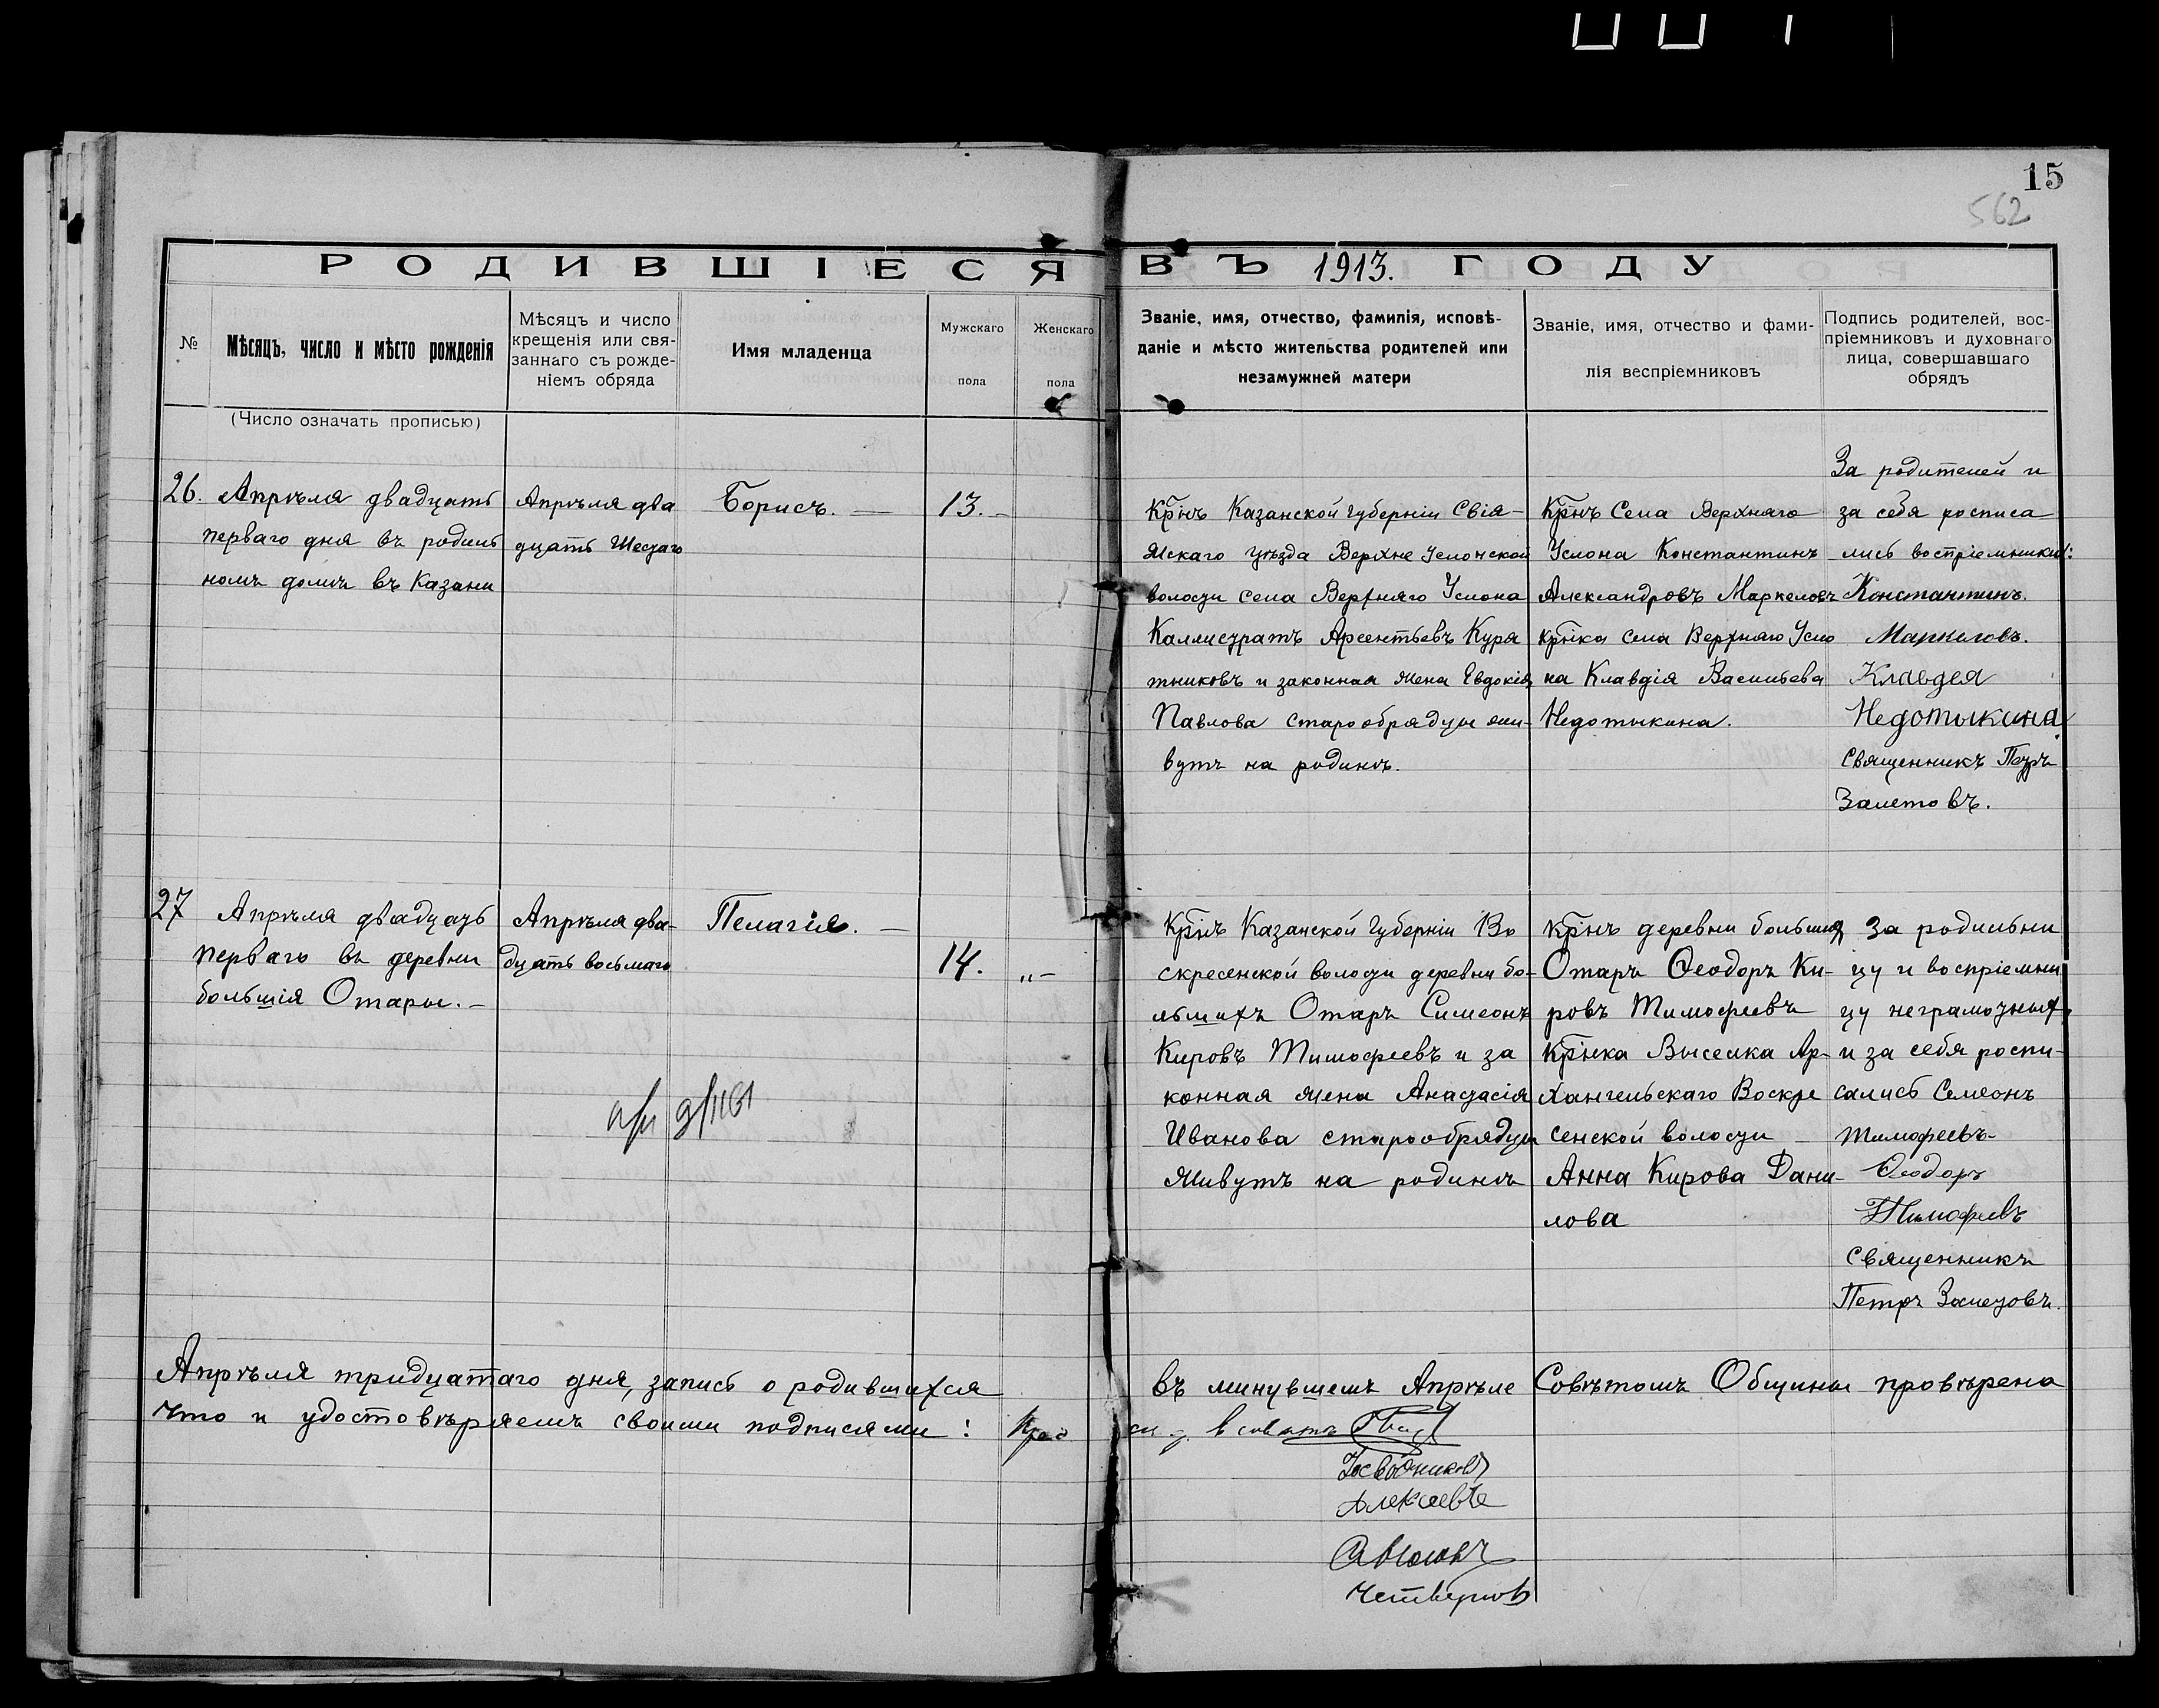 15
562
РОДИВШІЕСЯ ВЪ 1913. ГОДУ
№
Мѣсяцъ, число и мѣсто рожденія
Мѣсяцъ и число
крещенія или свя-
заннаго съ рожде-
ніемъ обряда
Имя младенца
Мужскаго
пола
Женскаго
пола
Званіе, имя, отчество, фамилія, исповѣ-
даніе и мѣсто жительства родителей или
незамужней матери
Званіе, имя, отчество и фами-
лія веспріемниковъ
Подпись родителей, вос-
пріемниковъ и духовнаго
лица, совершавшаго
обрядъ
(Число означать прописью)
26.
Апрѣля двадцать
перваго дня въ родиль
номъ домѣ въ Казани
Апрѣля два
дцать шестаго
Борисъ. —
13. –
Кр̅нъ Казанской губерніи Свія-
жскаго уѣзда Верхне Услонской
волости села Верхняго Услона
Каллистратъ Арсентьевъ Куря
тниковъ и законная жена Евдокія
Павлова старообрядцы жи-
вутъ на родинѣ.
Кр̅нъ Села Верхняго
Услона Константинъ
Александровъ Маркеловъ
кр̅нка села Верхняго Усло
на Клавдія Васильева
Недотыкина.
За родителей и
за себя росписа
лись воспріемники:
Константинъ.
Маркеловъ.
Клавдея
Недотыкина.
Священникъ Петръ
Залетовъ.
27
Апрѣля двадцать
перваго въ деревни
большія Отары. –
Апрѣля два-
дцать восьмаго
Пелагія. –
14. „–
Кр̅нъ Казанской Губерніи Во
скресенской волости деревни бо-
льшихъ Отаръ Симеонъ
Кировъ Тимофеевъ и за
конная жена Анастасія
Иванова старообрядцы
живутъ на родинѣ
Кр̅нъ деревни большія
Отаръ Ѳеодоръ Ки-
ровъ Тимофеевъ
Кр̅нка Выселка Ар-
хангельскаго Воскре
сенской волости –
Анна Кирова Дани-
лова
За родильни
цу и воспріемни
цу неграмотныхъ
и за себя роспи-
сались Семеонъ
Тимофеевъ-
Ѳеодоръ
Тимофеевъ
Священникъ
Петръ Залетовъ.
Апрѣля тридцатаго дня, запись о родившихся въ минувшемъ Апрѣле Совѣтомъ Общины провѣрена
что и удостовѣряемъ своими подписями: Пред
Алексеевъ
Четвергов